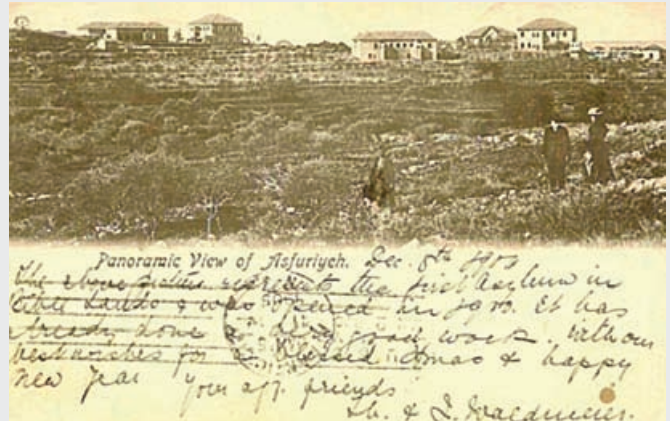 Panoramic View of Asfuriyeh. Dec. 8th 1903
The above picture represent the first Asylum in
Bible Lands & was opened in 1900. It has
already done a good work. With our
best wishes for a blessed Xmas & happy
New Year your aff. friends
Th. & F. Waldmeier.